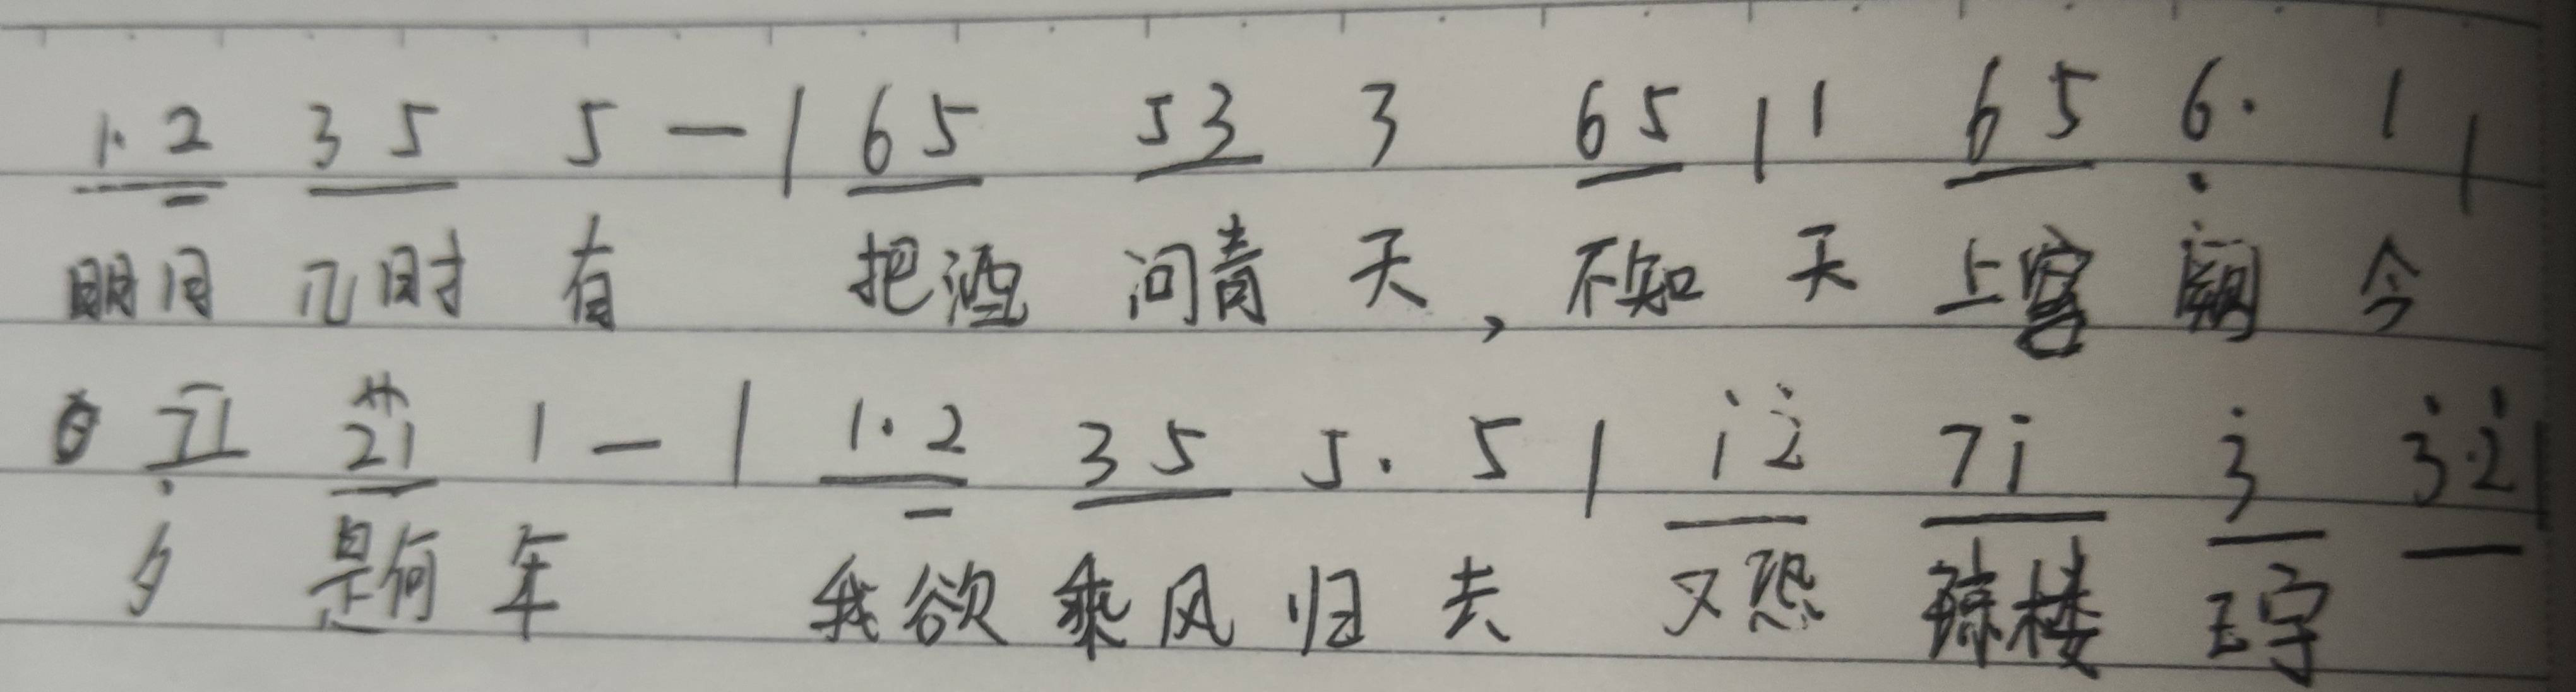 1·2 3 5 5 — | 6 5 5 3 3 6 5 | 1 6 5 6̣· 1 |
明月几时有 把酒问青天，不知天上宫阙今
7̣1 21 1 — | 1·2 3 5 5· 5 | i̇ 2̇ 7 i̇ 3̇ 3̇·2̇ |
夕 是何年 我欲乘风归去 又恐 琼楼 玉宇